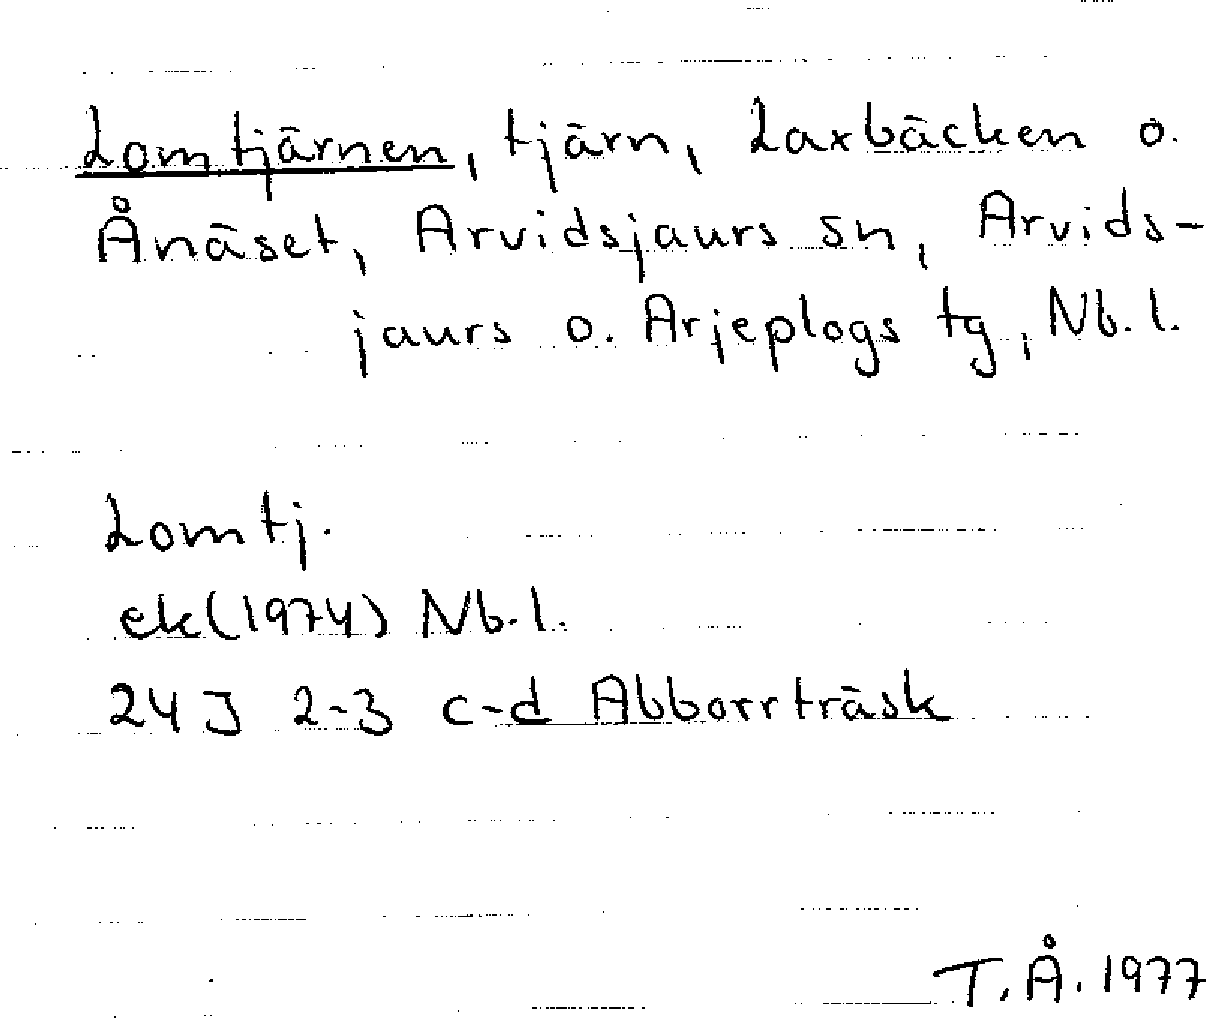 Lomtjärnen, tjärn, Laxbäcken o.
Ånäset, Arvidsjaurs sn, Arvids-
jaurs o. Arjeplogs tg, Nb.l.
Lomtj.
ek(1974) Nb.l.
24J 2-3 c-d Abborrträsk
T.Å. 1977